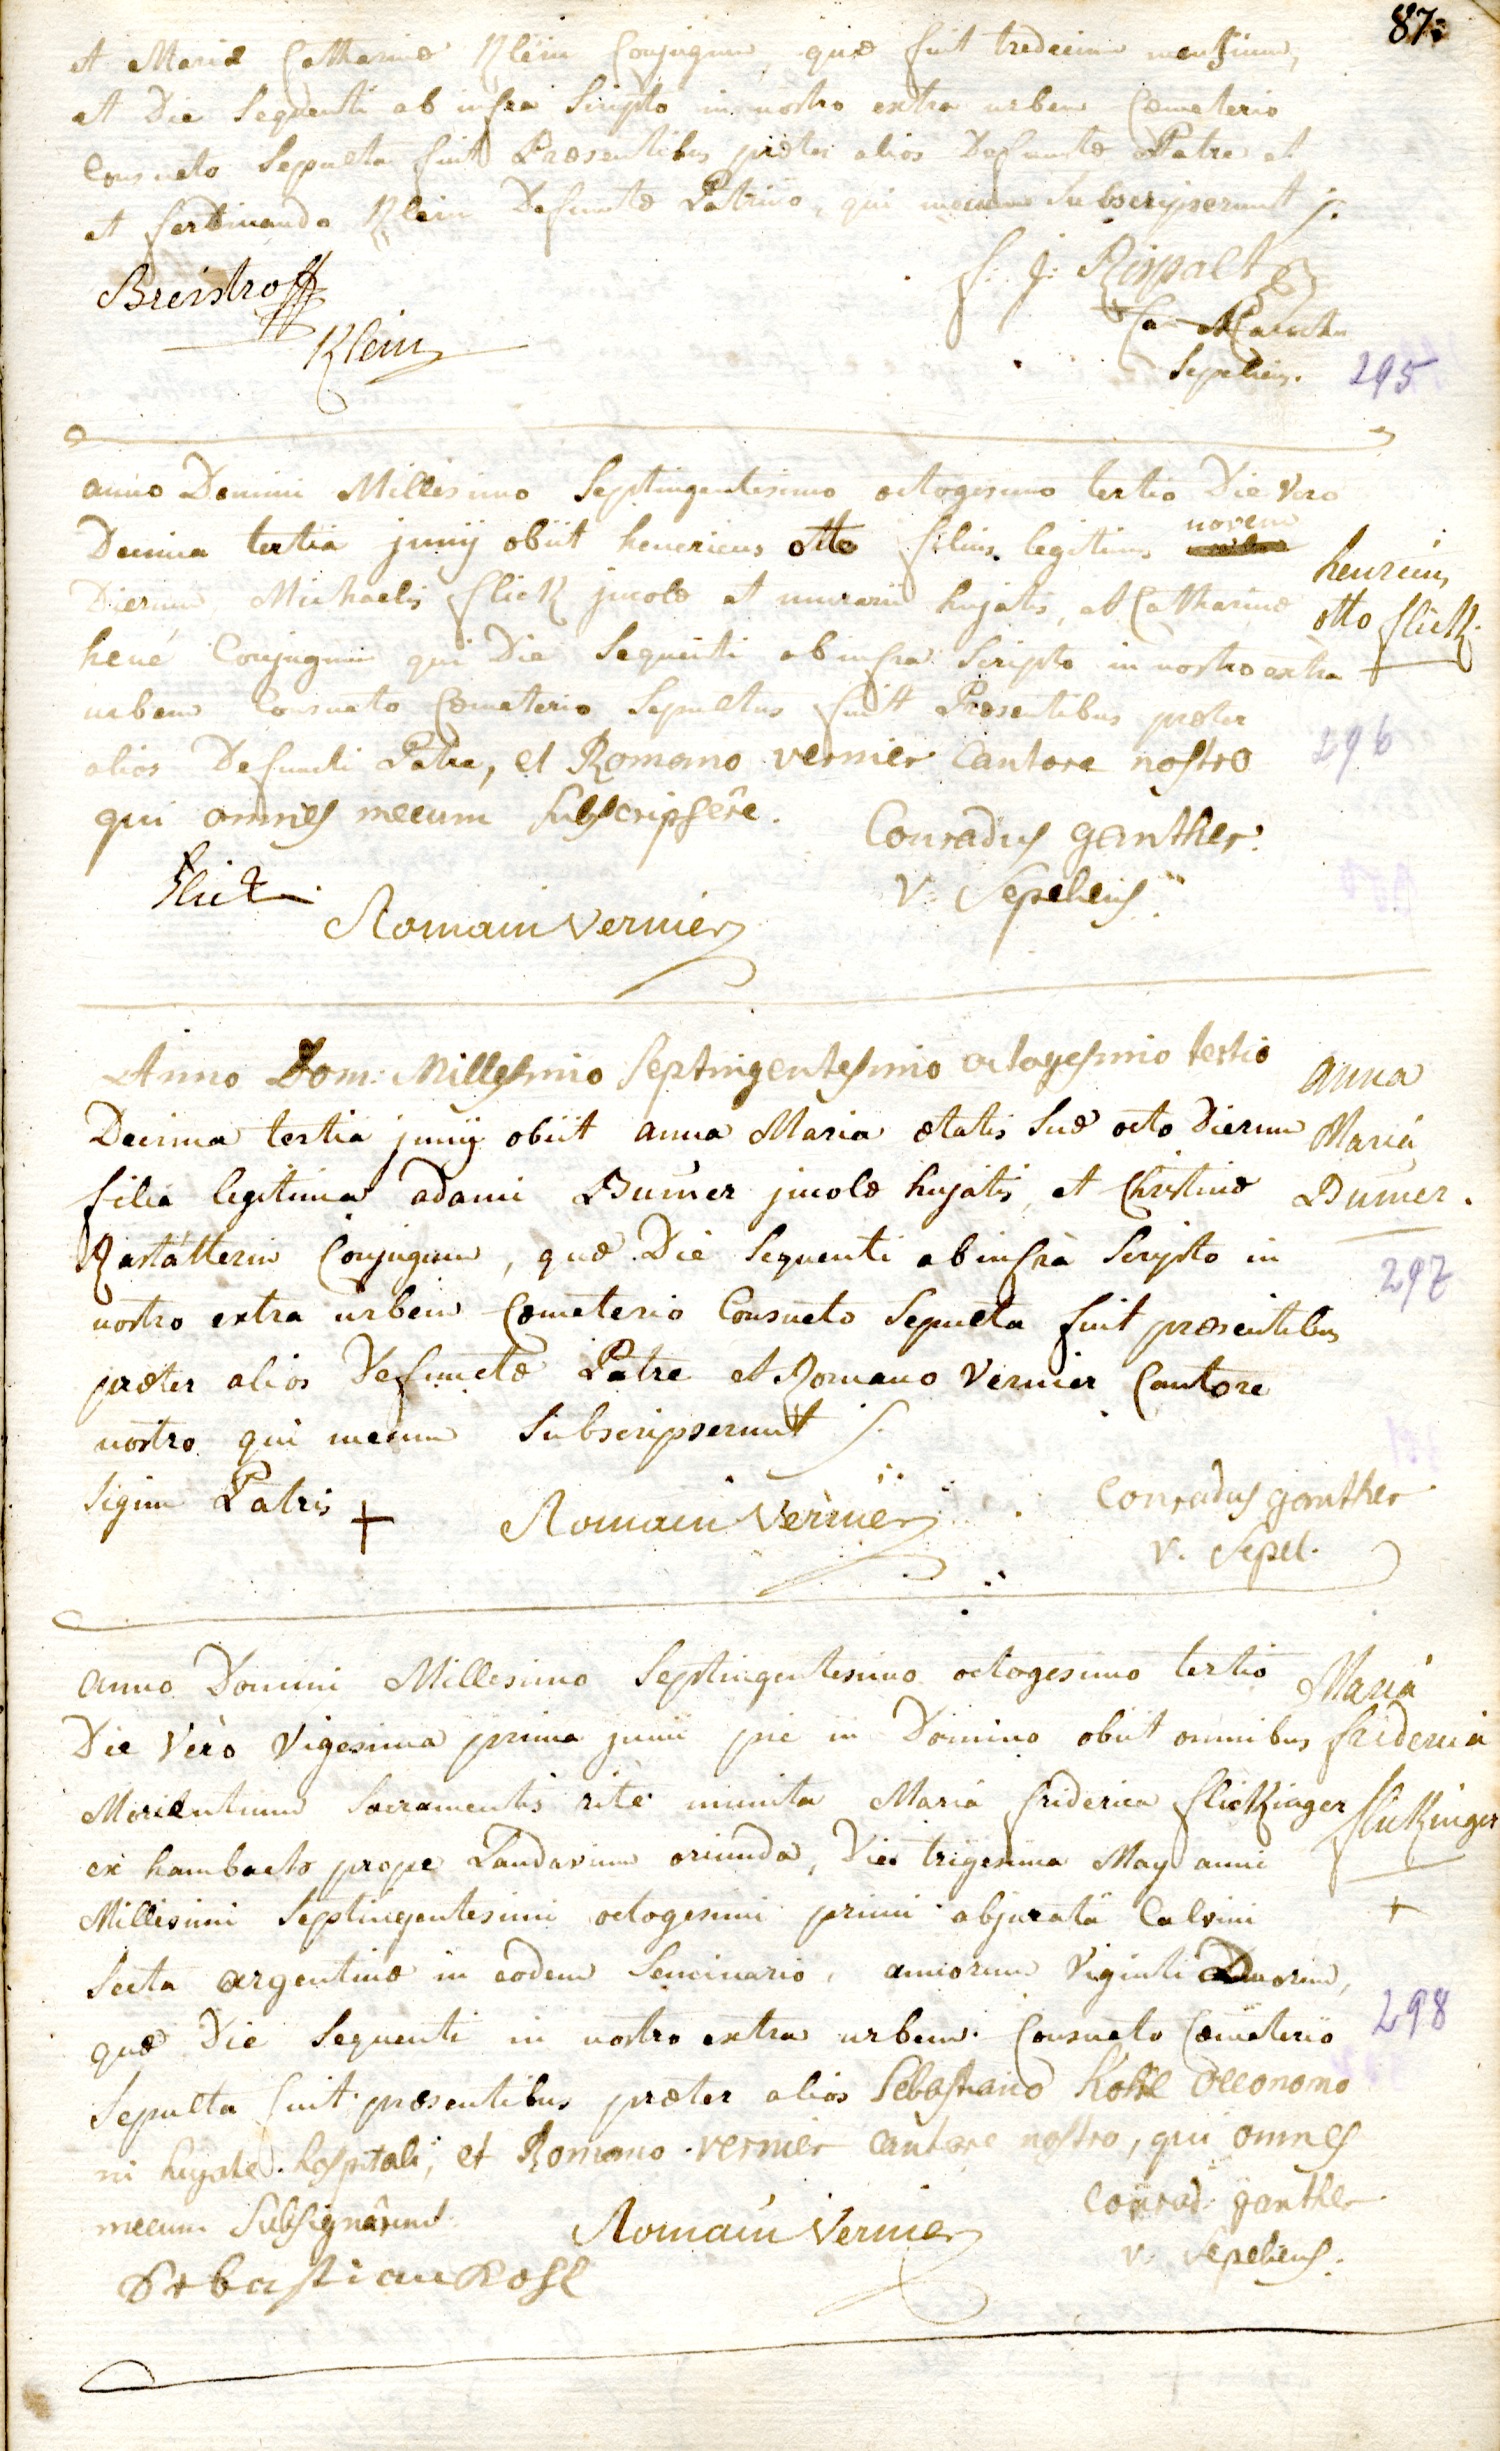 87.
et Mariæ Catharinæ Klein Conjugum, quæ fuit tredecim mensium,
et Die Sequenti ab infra Scripto in nostro extra urbem Cœmeterio
Consueto Sepulta fuit Præsentibus præter alios Defunctæ Patre et
et ferdinando Klein Defunctæ Patrino, qui mecum Subscripserunt
Breistroff
Klein
f: j: Rispalt
Sepeliens.
295
anno Domini Millesimo Septingentesimo octogesimo tertio Die Vero
Decima tertia junij obiit henericus otto filius legitimus novem
Dierum, Michaelis flick jncolæ et murarii hujatis, et Catharinæ
hené Conjugum qui Die Sequenti ab infra Scripto in nostro extra
urbem Consueto Cœmeterio Sepultus fuit Præsentibus præter
alios Defuncti Patre, et Romano vernier Cantore nostro
qui omnes mecum subscripsêre.
henricus
otto flick.
296
Conradus ganther.
v. Sepeliens.
Flick
Romain Vernier
Anno Dom: Millesimo Septingentesimo octogesimo tertio
Decima tertia junij obiit anna Maria ætatis Suæ octo Dierum
filia legitima adami Bumer jncolæ hujatis, et Christinæ
Rastätterin Conjugum, quæ Die Sequenti ab infrà Scripto in
nostro extra urbem Cœmeterio Consueto Sepulta fuit præsentibus
præter alios Defunctæ Patre et Romano Vernier Cantore
nostro qui mecum Subscripserunt
anna
Maria
Bumer.
297
Signum Patris +
Romain Vernier
Conradus ganther
v. Sepel.
anno Domini Millesimo Septingentesimo octogesimo tertio
Die Verò Vigesima prima junii pie in Domino obiit omnibus
Morientium Sacramentis ritè munita Maria friderica flickinger
ex hambach prope Landavium oriunda, Die trigesima May anni
Millesimi Septingentesimi octogesimi primi abjuratâ Calvini
Secta argentinæ in eodem Seminario, annorum Viginti Duorum,
quæ Die Sequenti in nostro extra urbem Consueto Cœmeterio
Sepulta fuit præsentibus præter alios Sebastiano Kohl Oeconomo
in hujate hospitali, et Romano vernier cantore nostro, qui omnes
mecum Subsignârunt
Maria
friderica
flickinger
+
298
Sebastian Kohl
Romain Vernier
Conrad ganther
v. Sepeliens.